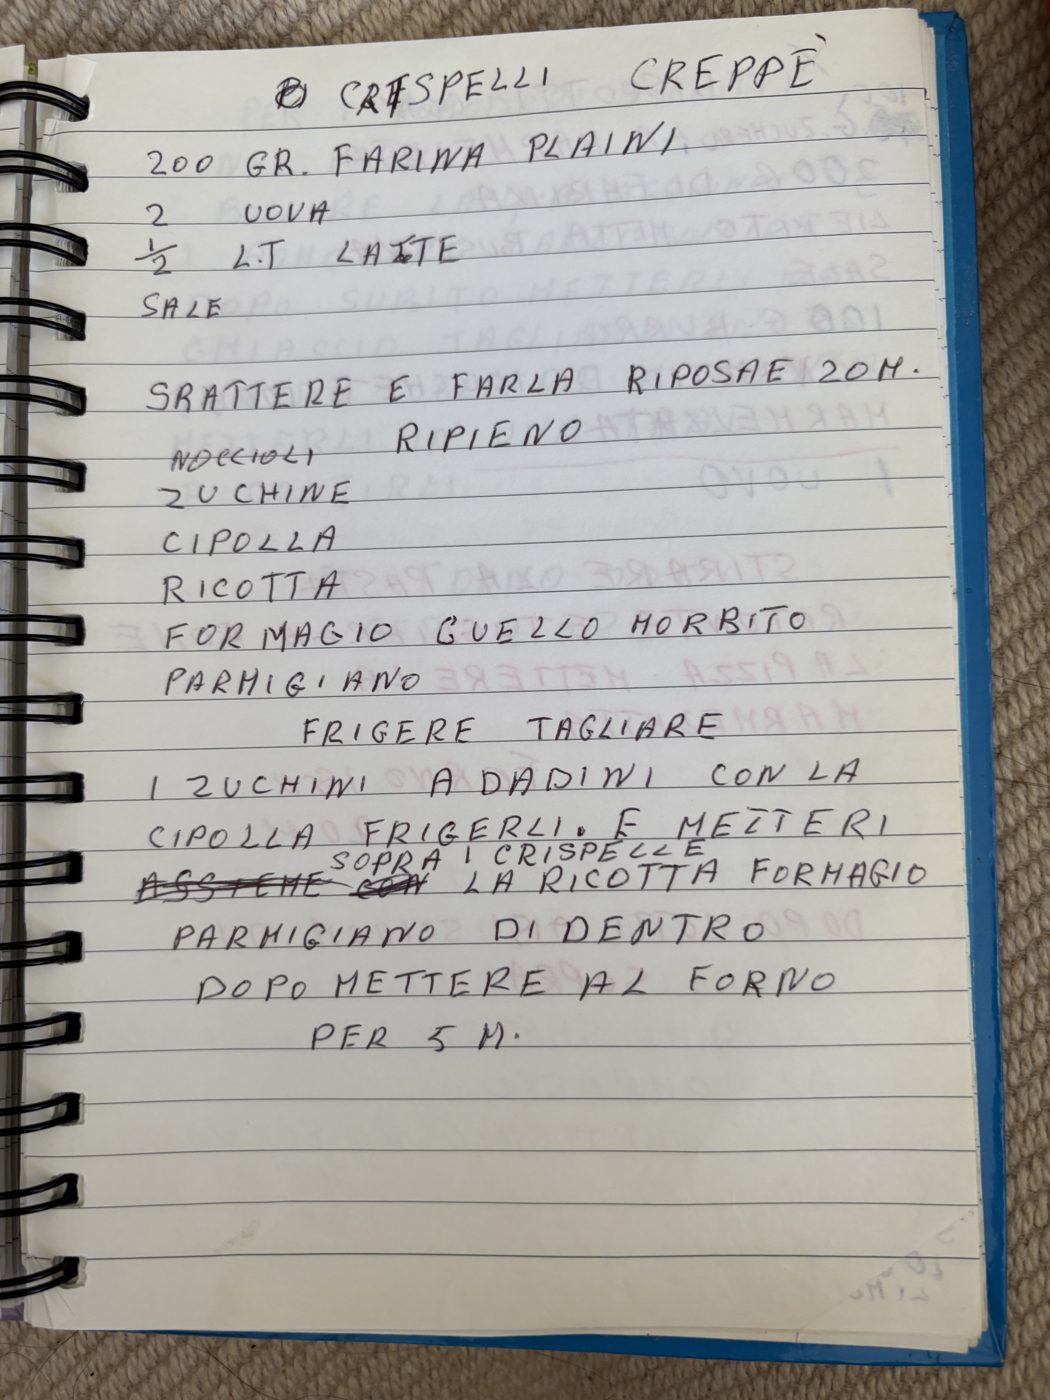 CRISPELLI CREPPÈ
200 GR. FARINA PLAINI
2 UOVA
½ LT LATTE
SALE
SBATTERE E FARLA RIPOSAE 20 M.
RIPIENO
NOCCIOLI
ZUCHINE
CIPOLLA
RICOTTA
FORMAGIO GUELLO MORBITO
PARMIGIANO
FRIGERE TAGLIARE
I ZUCHINI A DADINI CON LA
CIPOLLA FRIGERLI. E METTERI
SOPRA I CRISPELLE
ASSIEME CON LA RICOTTA FORMAGIO
PARMIGIANO DI DENTRO
DOPO METTERE AL FORNO
PER 5 M.